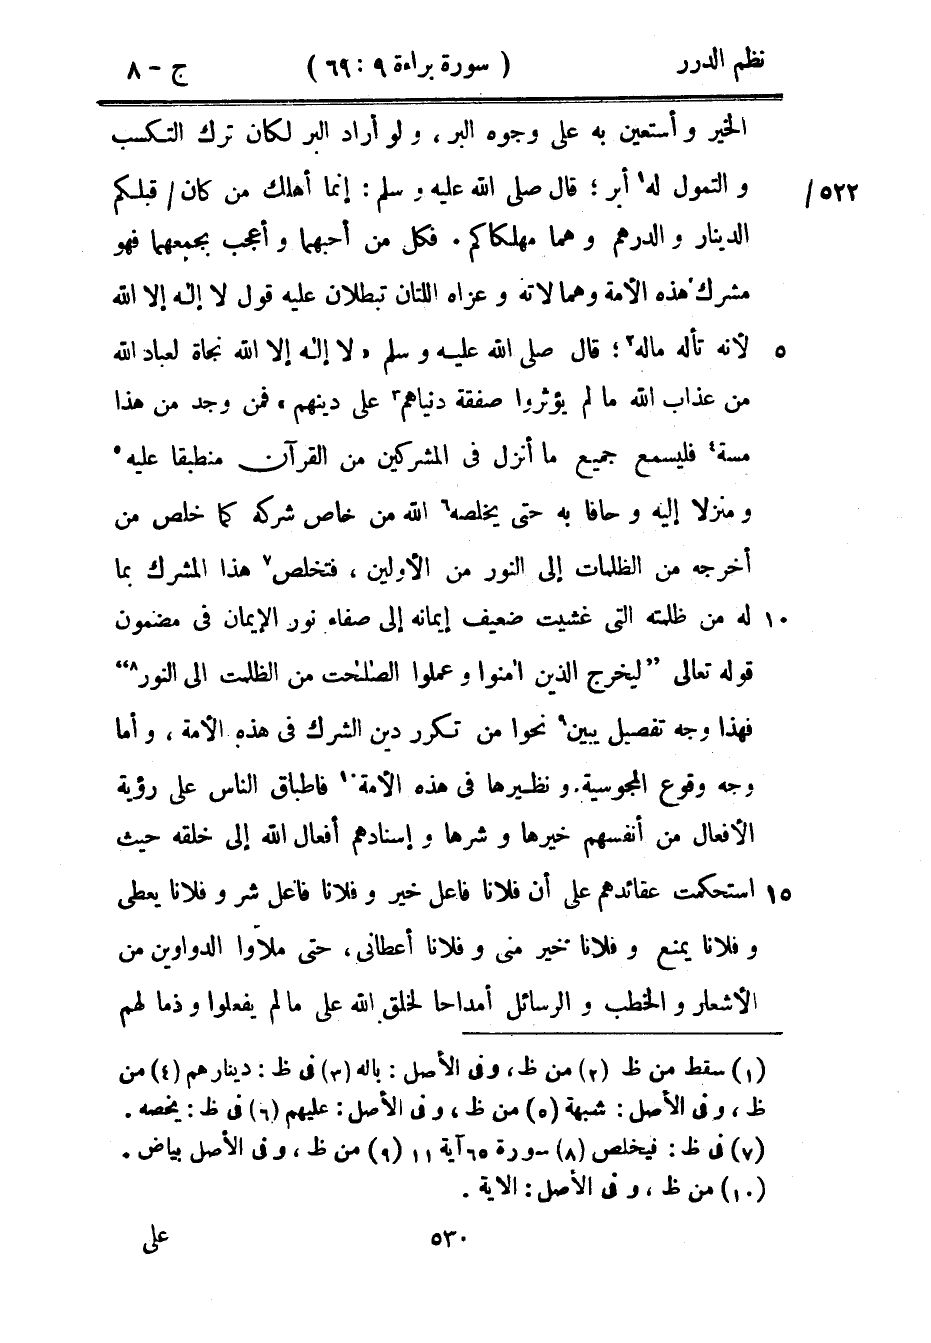 نظم الدرر ( سورة براءة ٩ : ٦٩ ) ج - ٨
الخير و أستعين به على وجوه البر ، و لو أراد البر لكان ترك التكسب
و التمول له١ أبر ؛ قال صلى الله عليه و سلم : إنما أهلك من كان / قبلكم /٥٢٢
الدينار و الدرهم و هما مهلكاكم . فكل من أحبهما و أعجب بجمعهما فهو
مشرك هذه الأمة وهما لاته و عزاه اللتان تبطلان عليه قول لا إله إلا الله
لأنه تأله ماله٢ ؛ قال صلى الله عليه و سلم « لا إله إلا الله نجاة لعباد الله ٥
من عذاب الله ما لم يؤثروا صفقة دنياهم٣ على دينهم » فمن وجد من هذا
مسة٤ فليسمع جميع ما أنزل فى المشركين من القرآن منطبقا عليه٥
و منزلا إليه و حافا به حتى يخلصه٦ الله من خاص شركه كما خلص من
أخرجه من الظلمات إلى النور من الأولين ، فتخلص٧ هذا المشرك بما
له من ظلمته التى غشيت ضعيف إيمانه إلى صفاء نور الإيمان فى مضمون ١٠
قوله تعالى ”ليخرج الذين اٰمنوا و عملوا الصٰلحٰت من الظلمت الى النور٨“
فهذا وجه تفصيل يبين٩ نحوا من تكرر دين الشرك فى هذه الأمة ، و أما
وجه وقوع المجوسية و نظيرها فى هذه الأمة١٠ فاطباق الناس على رؤية
الأفعال من أنفسهم خيرها و شرها و إسنادهم أفعال الله إلى خلقه حيث
استحكمت عقائدهم على أن فلانا فاعل خير و فلانا فاعل شر و فلانا يعطى ١٥
و فلانا يمنع و فلانا خير منى و فلانا أعطانى ، حتى ملأوا الدواوين من
الأشعار و الخطب و الرسائل أمداحا لخلق الله على ما لم يفعلوا و ذما لهم
(١) سقط من ظ (٢) من ظ ، وفى الأصل : باله (٣) فى ظ : دينارهم (٤) من
ظ ، و فى الأصل : شبهة (٥) من ظ ، و فى الأصل : عليهم (٦) فى ظ : يخصه .
(٧) فى ظ : فيخلص (٨) سورة ٦٥ آية ١١ (٩) من ظ ، و فى الأصل بياض .
(١٠) من ظ ، و فى الأصل : الاية .
٥٣٠ على